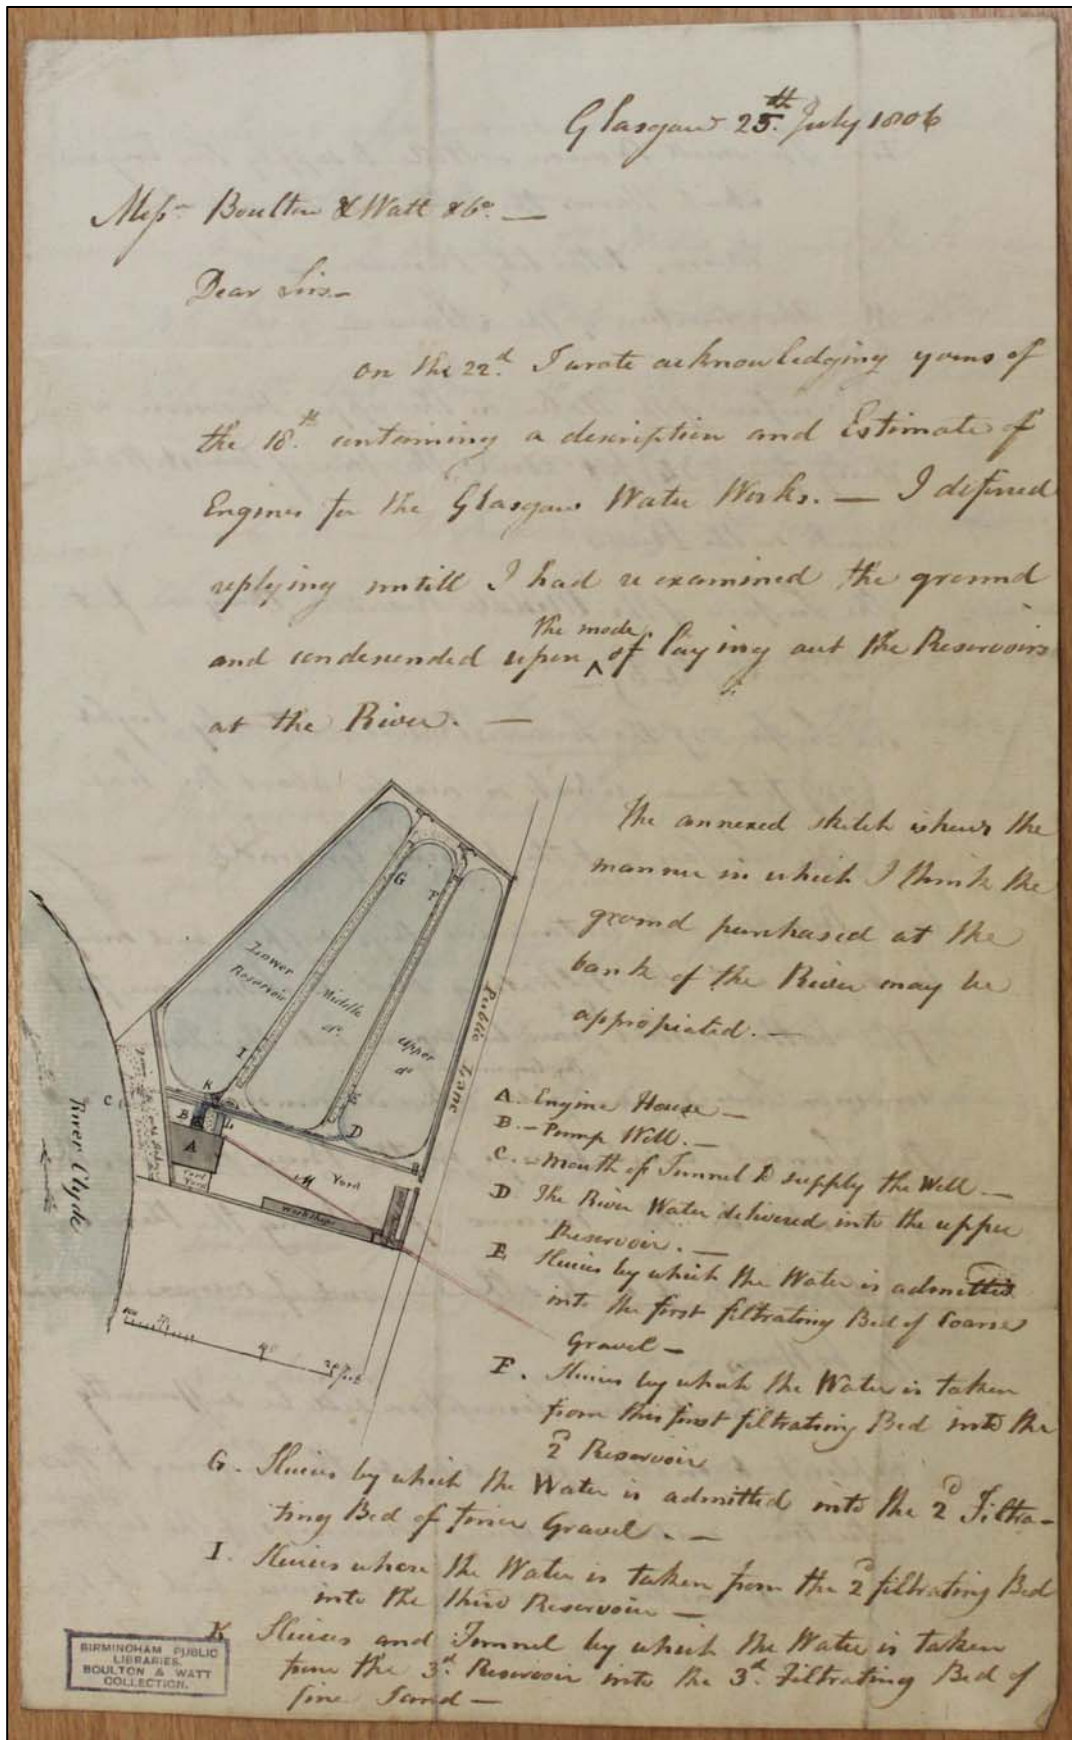 Glasgow 25th July 1806
Messrs Boulton & Watt & Co. —
Dear Sirs —
on the 22d. I wrote acknowledging yours of
the 18th. containing a description and Estimate of
Engines for the Glasgow Water Works. — I defered
replying untill I had reexamined the ground
and condescended upon the mode of laying out the Reservoirs
at the River. —
The annexed sketch shews the
manner in which I think the
ground purchased at the
bank of the River may be
appropiated. —
A. Engine House —
B. — Pump Well. —
C. — Mouth of Tunnel to supply the Well —
D The River Water delivered into the upper
Reservoir. —
E Sluices by which the Water is admitted
into the first filtrating Bed of Coarse
Gravel —
F. Sluices by which the Water is taken
from this first filtrating Bed into the
2d Reservoir
G. Sluices by which the Water is admitted into the 2d Filtra-
ting Bed of finer Gravel. —
I. Sluices where the Water is taken from the 2d filtrating Bed
into the third Reservoir —
K Sluices and Tunnel by which the Water is taken
from the 3d. Reservoir into the 3d. Filtrating Bed of
fine Sand —
Lower
Reservoir
Middle
do.
Upper
do
Public Lane
River Clyde
G
F
I
K
E
D
C
B
L
A
M
Yard
Workshops
BIRMINGHAM PUBLIC
LIBRARIES.
BOULTON & WATT
COLLECTION.